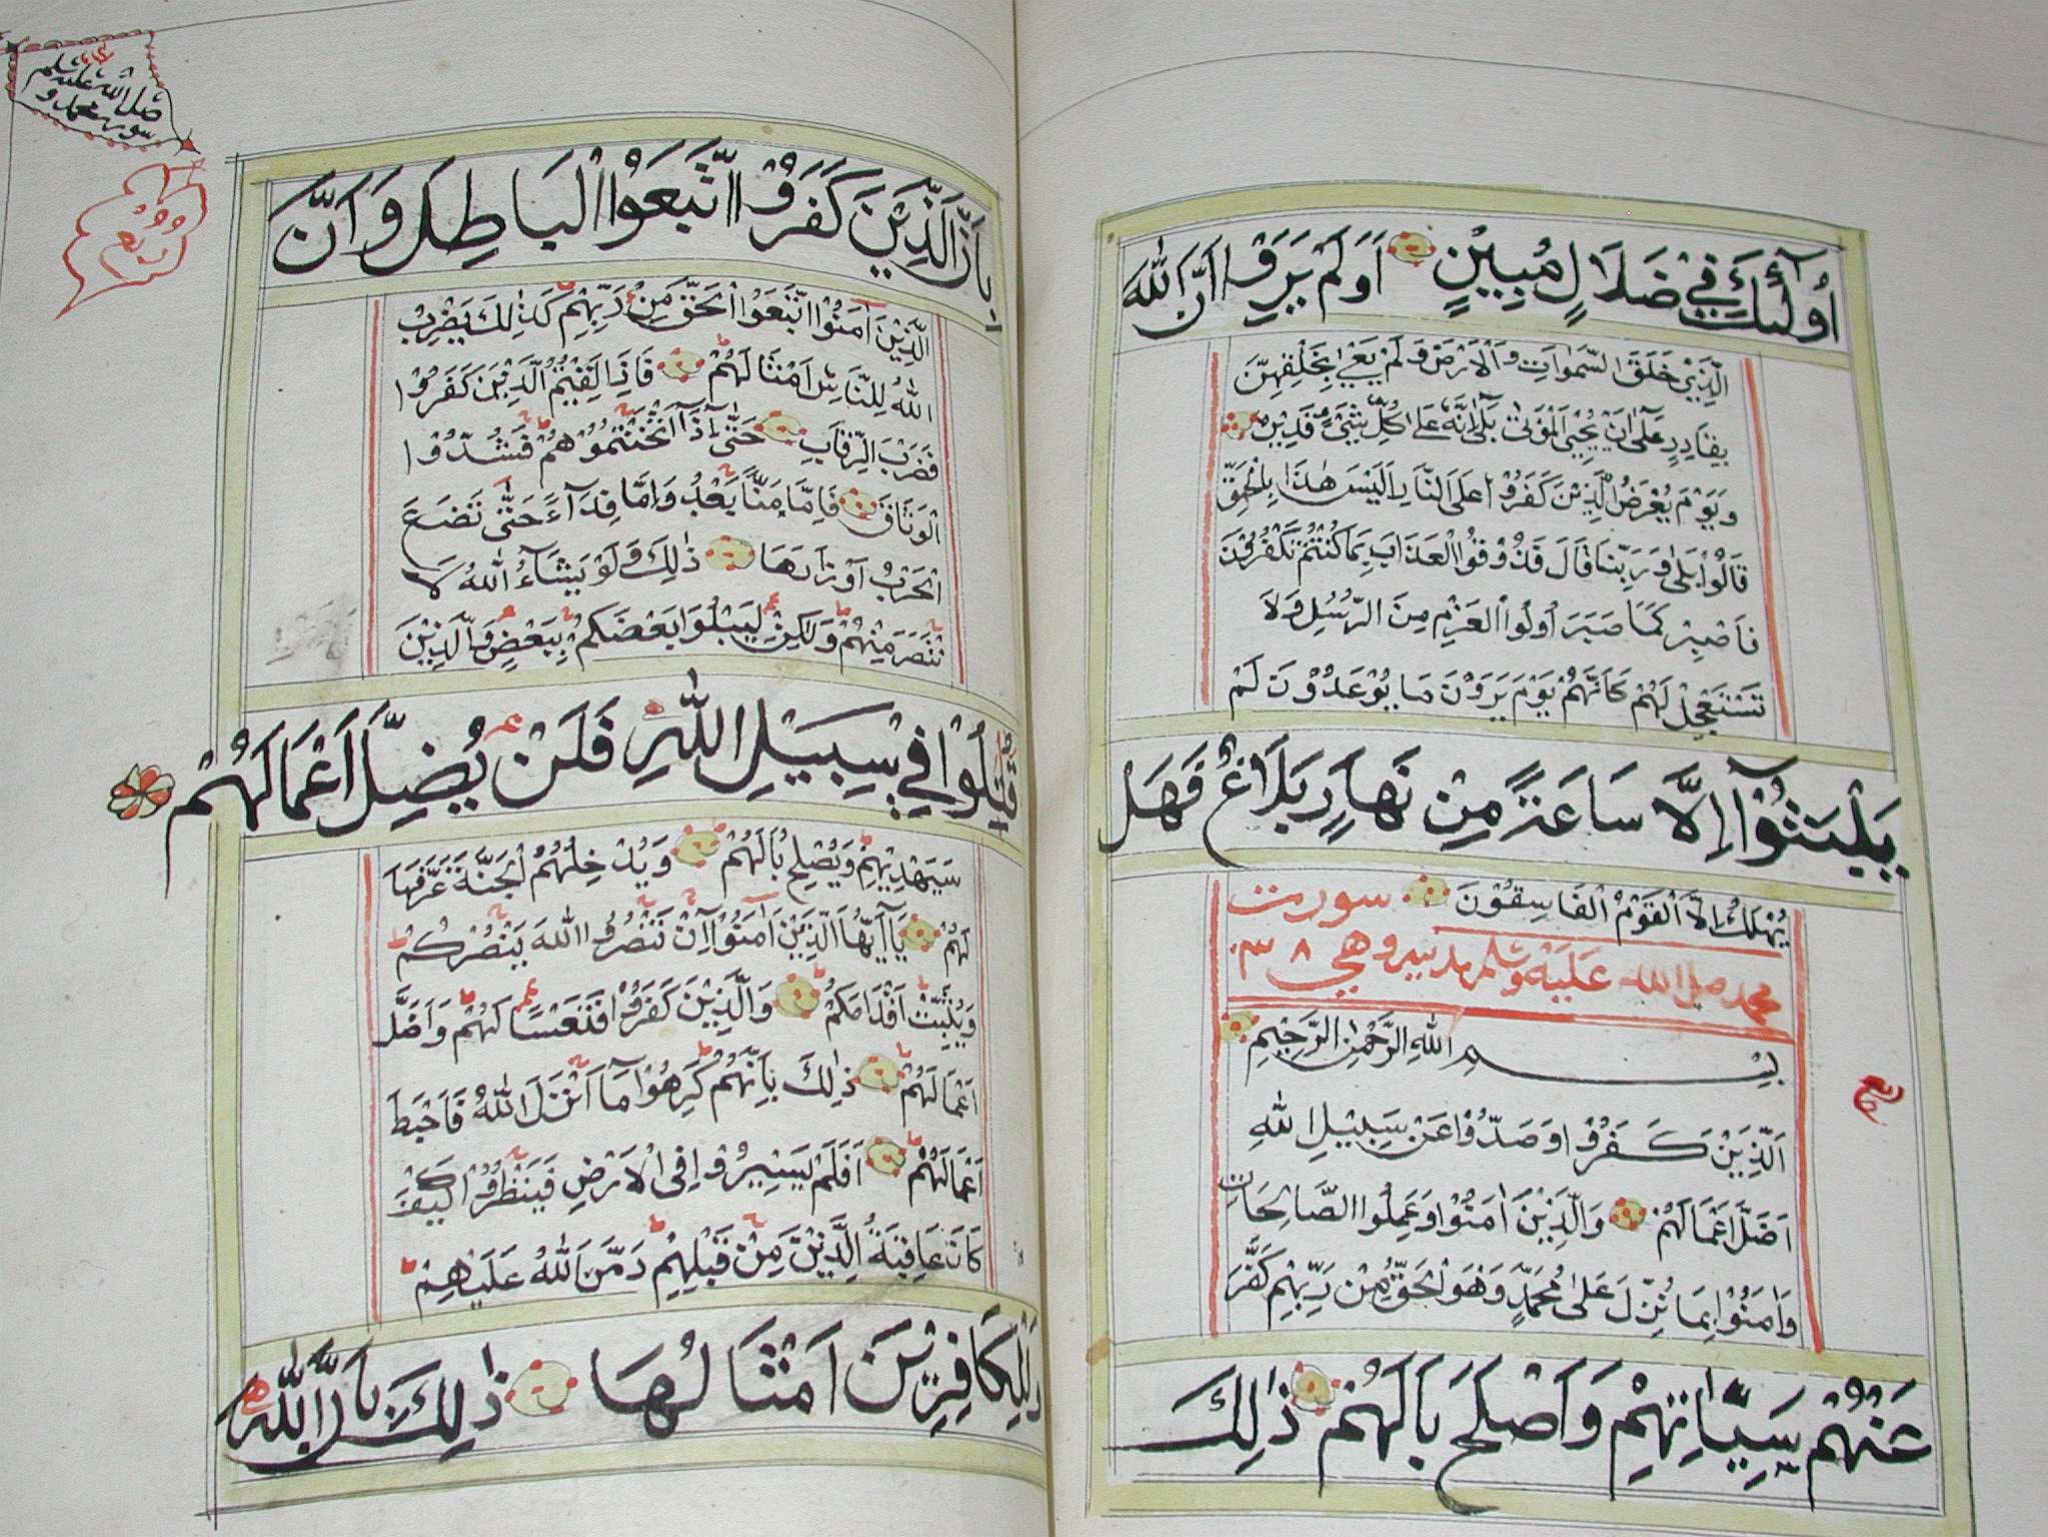 اُولٰٓئِكَ فِيْ ضَلَالٍ مُبِيْنٍ اَوَلَمْ يَرَوْا اَنَّ اللّٰهَ
الَّذِيْ خَلَقَ السَّمٰوَاتِ وَالْاَرْضَ وَلَمْ يَعْيَ بِخَلْقِهِنَّ
بِقَادِرٍ عَلٰٓى اَنْ يُحْيِيَ الْمَوْتٰى بَلٰٓى اِنَّهٗ عَلٰى كُلِّ شَيْئٍ قَدِيْرٌ
وَيَوْمَ يُعْرَضُ الَّذِيْنَ كَفَرُوْا عَلَى النَّارِ اَلَيْسَ هٰذَا بِالْحَقِّ
قَالُوْا بَلٰى وَرَبِّنَا قَالَ فَذُوْقُوا الْعَذَابَ بِمَا كُنْتُمْ تَكْفُرُوْنَ
فَاصْبِرْ كَمَا صَبَرَ اُولُوا الْعَزْمِ مِنَ الرُّسُلِ وَلَا
تَسْتَعْجِلْ لَهُمْ كَاَنَّهُمْ يَوْمَ يَرَوْنَ مَا يُوْعَدُوْنَ لَمْ
يَلْبَثُوْٓا اِلَّا سَاعَةً مِنْ نَهَارٍ بَلَاغٌ فَهَلْ
يُهْلَكُ اِلَّا الْقَوْمُ الْفَاسِقُوْنَ سورت
محمد صلى الله عليه وسلم مدنيه وهي ٣٨
بِسْمِ اللّٰهِ الرَّحْمٰنِ الرَّحِيْمِ
اَلَّذِيْنَ كَفَرُوْا وَصَدُّوْا عَنْ سَبِيْلِ اللّٰهِ
اَضَلَّ اَعْمَالَهُمْ وَالَّذِيْنَ اٰمَنُوْا وَعَمِلُوا الصَّالِحَاتِ
وَاٰمَنُوْا بِمَا نُزِّلَ عَلٰى مُحَمَّدٍ وَهُوَ الْحَقُّ مِنْ رَبِّهِمْ كَفَّرَ
عَنْهُمْ سَيِّاٰتِهِمْ وَاَصْلَحَ بَالَهُمْ ذٰلِكَ
صلى الله عليه وسلم
سورة محمد
بِاَنَّ الَّذِيْنَ كَفَرُوا اتَّبَعُوا الْبَاطِلَ وَاَنَّ
الَّذِيْنَ اٰمَنُوا اتَّبَعُوا الْحَقَّ مِنْ رَبِّهِمْ كَذٰلِكَ يَضْرِبُ
اللّٰهُ لِلنَّاسِ اَمْثَالَهُمْ فَاِذَا لَقِيْتُمُ الَّذِيْنَ كَفَرُوْا
فَضَرْبَ الرِّقَابِ حَتّٰٓى اِذَآ اَثْخَنْتُمُوْهُمْ فَشُدُّوْا
الْوَثَاقَ فَاِمَّا مَنًّا بَعْدُ وَاِمَّا فِدَآءً حَتّٰى تَضَعَ
الْحَرْبُ اَوْزَارَهَا ذٰلِكَ وَلَوْ يَشَآءُ اللّٰهُ لَا
نْتَصَرَ مِنْهُمْ وَلٰكِنْ لِيَبْلُوَا بَعْضَكُمْ بِبَعْضٍ وَالَّذِيْنَ
قُتِلُوْا فِيْ سَبِيْلِ اللّٰهِ فَلَنْ يُضِلَّ اَعْمَالَهُمْ
سَيَهْدِيْهِمْ وَيُصْلِحُ بَالَهُمْ وَيُدْخِلُهُمُ الْجَنَّةَ عَرَّفَهَا
لَهُمْ يَآ اَيُّهَا الَّذِيْنَ اٰمَنُوْٓا اِنْ تَنْصُرُوا اللّٰهَ يَنْصُرْكُمْ
وَيُثَبِّتْ اَقْدَامَكُمْ وَالَّذِيْنَ كَفَرُوْا فَتَعْسًا لَهُمْ وَاَضَلَّ
اَعْمَالَهُمْ ذٰلِكَ بِاَنَّهُمْ كَرِهُوْا مَآ اَنْزَلَ اللّٰهُ فَاَحْبَطَ
اَعْمَالَهُمْ اَفَلَمْ يَسِيْرُوْا فِي الْاَرْضِ فَيَنْظُرُوْا كَيْفَ
كَانَ عَاقِبَةُ الَّذِيْنَ مِنْ قَبْلِهِمْ دَمَّرَ اللّٰهُ عَلَيْهِمْ
وَلِلْكَافِرِيْنَ اَمْثَالُهَا ذٰلِكَ بِاَنَّ اللّٰهَ